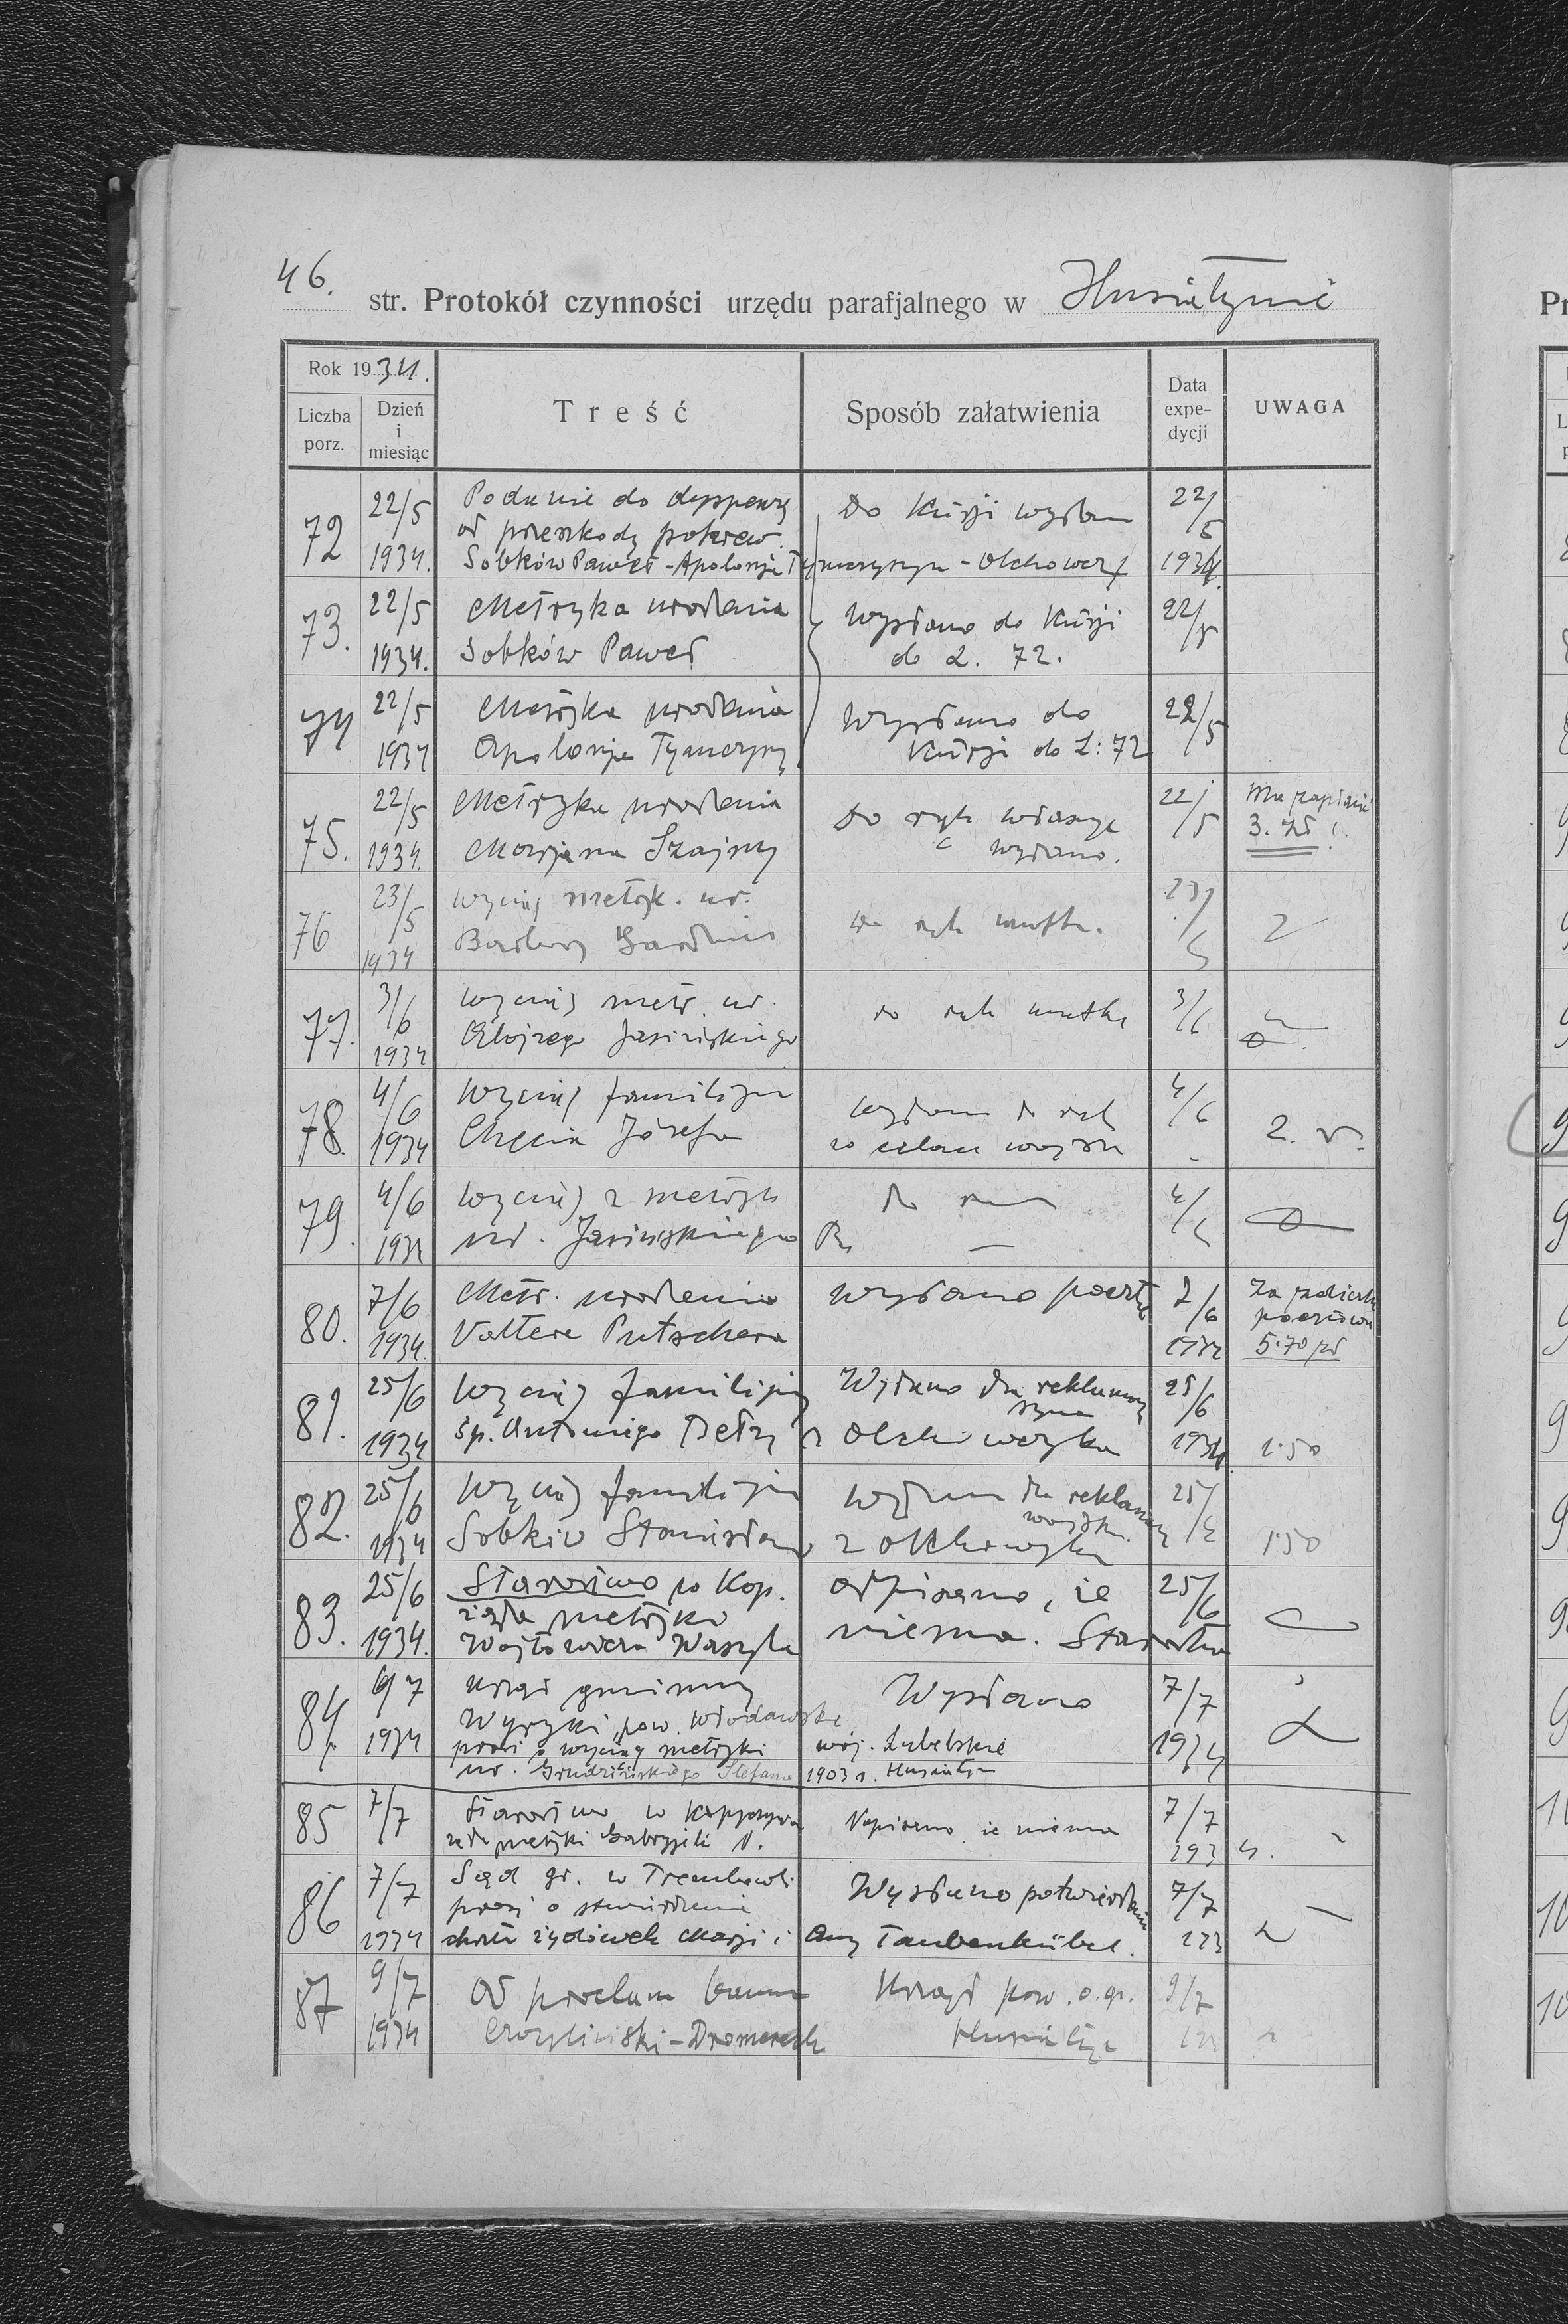 46. str. Protokół czynności urzędu parafjalnego w Husiatynie
Rok 1934.
Liczba porz.
Dzień i miesiąc
Treść
Sposób załatwienia
Data expedycji
UWAGA
72
22/5
1934.
Podanie do dyspensy
od przeszkody pokrew.
Sobków Paweł - Apolonja Tymczyszyn - Olchowczyk
Do Kurji wysłano
22/5
1934.
73.
22/5
1934.
Metryka urodzenia
Sobków Paweł
Wysłano do Kurji
do L. 72.
22/5
74
22/5
1934
Metryka urodzenia
Apolonja
Wysłano do
Kurji do L: 72
22/5
75.
22/5
1934.
Metryka urodzenia
Marjana Szajny
Do rąk własnych
wydano.
22/5
Ma zapłacić
3. zł
76
23/5
1934
Wyciąg metryk. ur.
do rąk matki.
23/5
2
77.
3/6
1934
Wyciąg metr. ur.
Alojzego Jasińskiego
do rąk matki
3/6
78.
4/6
1934
Wyciąg familijny
Józefa
wydano do rąk
w celach wojsk
4/6
2.
79.
4/6
193
Wyciąg z metryk
ur. Jasińskiego
do
4/
80.
7/6
1934.
Metr. urodzenia
Voltera Putschera
Wysłano pocztą
7/6
1934
Za zaliczką
pocztową
5.70 zł
81.
25/6
1934
Wyciąg familijny
śp. Antoniego Petry z Olchowczyka
Wydano dla reklamacji
syna
25/6
1934.
1.50
82.
25/6
1934
Wyciąg familijny
Sobkiv Stanisław
wydano dla reklamacji
wojsk.
z Olchowczyka
25/
1.50
83.
25/6
1934.
Starostwo w Kop.
żąda metryki
Wojtowicza Wasyla
odpisano, że
niema. Starostwu
25/6
84.
1934
Urząd gminny
Wyryki, pow. Włodawskie
prosi o wyciąg metryki woj. Lubelskie
ur. Grudzińskiego Stefana 1903 r. Husiatyn
Wysłano
7/7
1934
85
7/7
Starostwo w
żąda metryki
Napisano że niema
7/7
1934.
86
7/7
1934
Sąd gr. w Trembowli
prosi o stwierdzenie
chrztu żydówek Marji i Anny Taubenkübel.
Wysłano potwierdzenie
7/7
193
87
9/7
1934
Urząd pow. o. gr.
Husiatyn
9/7